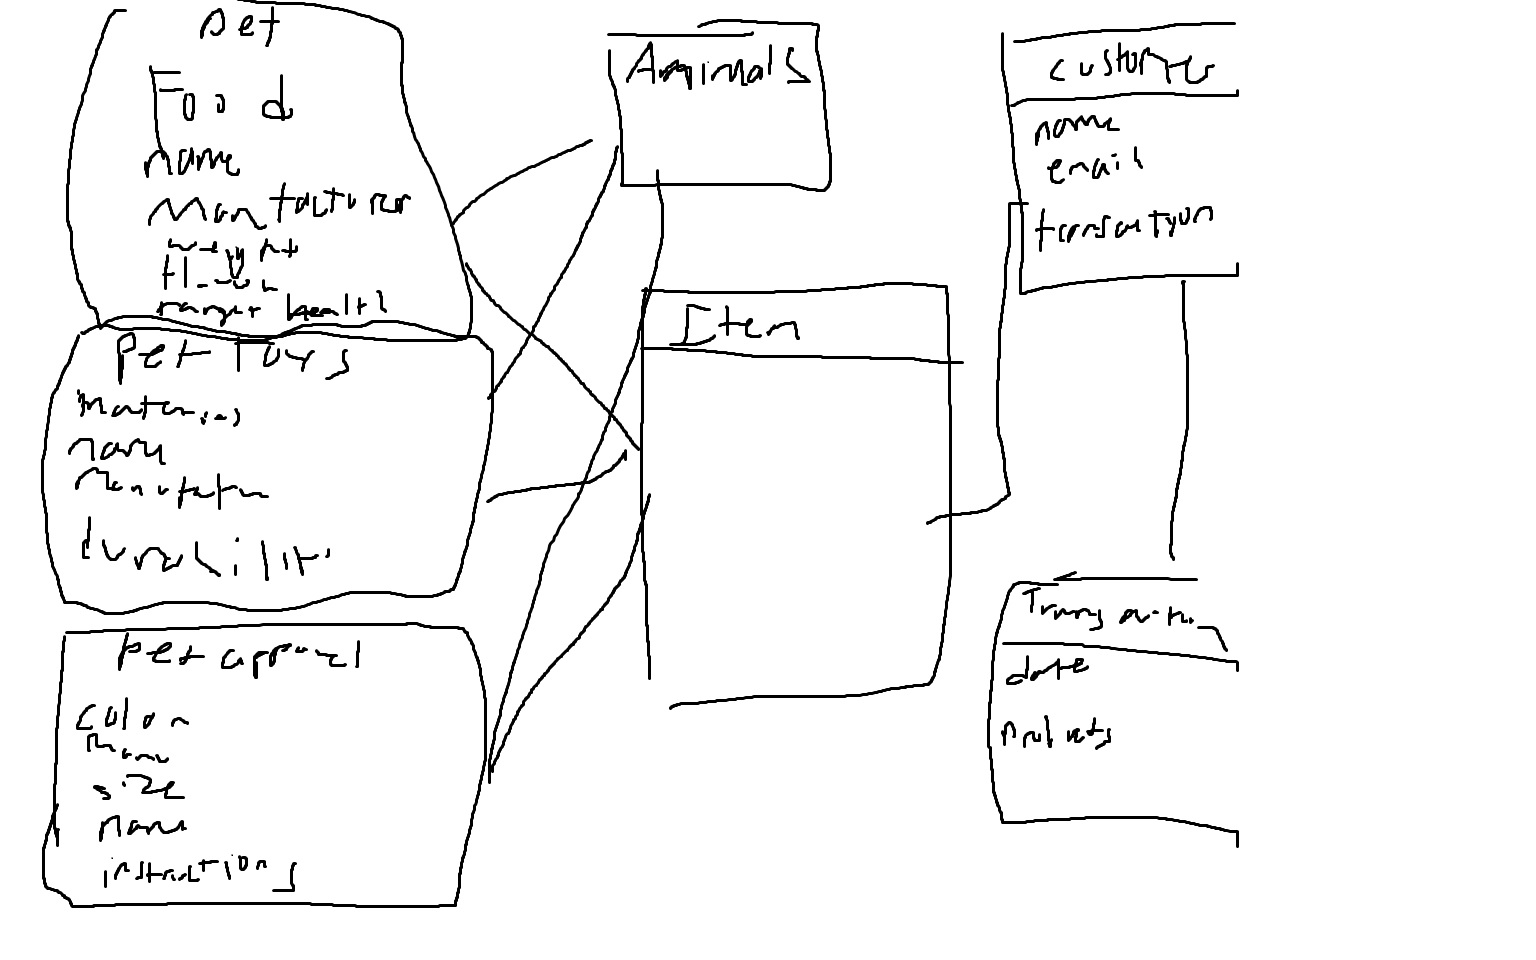 Pet
Food
name
Manufacturer
weight
flavor
target health
Pet Toys
Material
name
Manufacturer
durability
Pet apparel
color
Manu
size
name
instructions
Animals
Item
customer
name
email
transaction
Transaction
date
Products